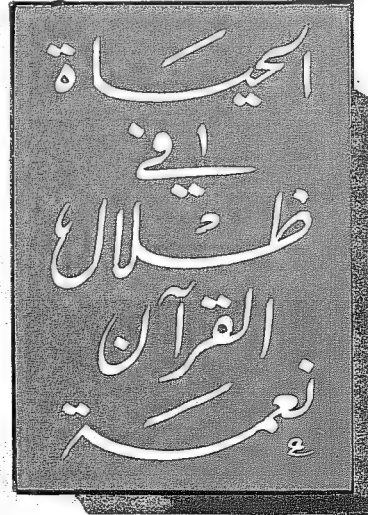 الحياة
في
ظلال
القرآن
نعمة